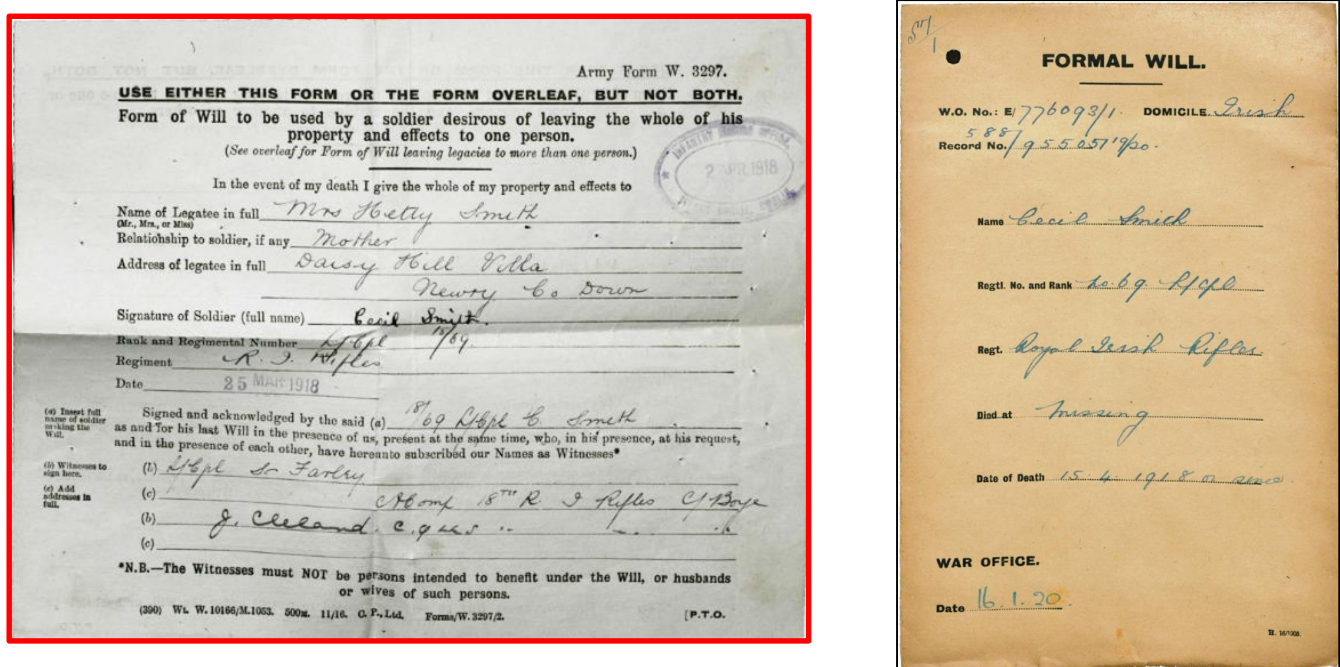 Army Form W. 3297.
USE EITHER THIS FORM OR THE FORM OVERLEAF, BUT NOT BOTH.
Form of Will to be used by a soldier desirous of leaving the whole of his
property and effects to one person.
(See overleaf for Form of Will leaving legacies to more than one person.)
INFANTRY RECORD OFFICE,
2 APR. 1918
In the event of my death I give the whole of my property and effects to
Name of Legatee in full Mrs Hetty Smith
(Mr., Mrs., or Miss)
Relationship to soldier, if any Mother
Address of legatee in full Daisy Hill Villa
Newry Co Down
Signature of Soldier (full name) Cecil Smith.
Rank and Regimental Number L/Cpl 18/69
Regiment R. I. Rifles
Date 25 MAR 1918
(a) Insert full
name of soldier
making the
Will.
Signed and acknowledged by the said (a) 18/69 L/Cpl C. Smith
as and for his last Will in the presence of us, present at the same time, who, in his presence, at his request,
and in the presence of each other, have hereunto subscribed our Names as Witnesses*
(b) Witnesses to
sign here.
(b) L/Cpl Farley
(c) Add
addresses in
full.
(c) A Comp 18TH R I Rifles
(b) J. Cleland. C.Q.M.S " " "
(c)
*N.B.—The Witnesses must NOT be persons intended to benefit under the Will, or husbands
or wives of such persons.
(390) Wt. W. 10166/M.1053. 500M. 11/16. C. P., Ltd. Forms/W. 3297/2. [P.T.O.
FORMAL WILL.
W.O. No.: E/776093/1. DOMICILE Irish
588
Record No./955057 19/20.
Name Cecil Smith
Regtl. No. and Rank No. 69 L/Cpl
Regt. Royal Irish Rifles
Died at Missing
Date of Death 15.4.1918 or since
WAR OFFICE.
Date 16.1.20.